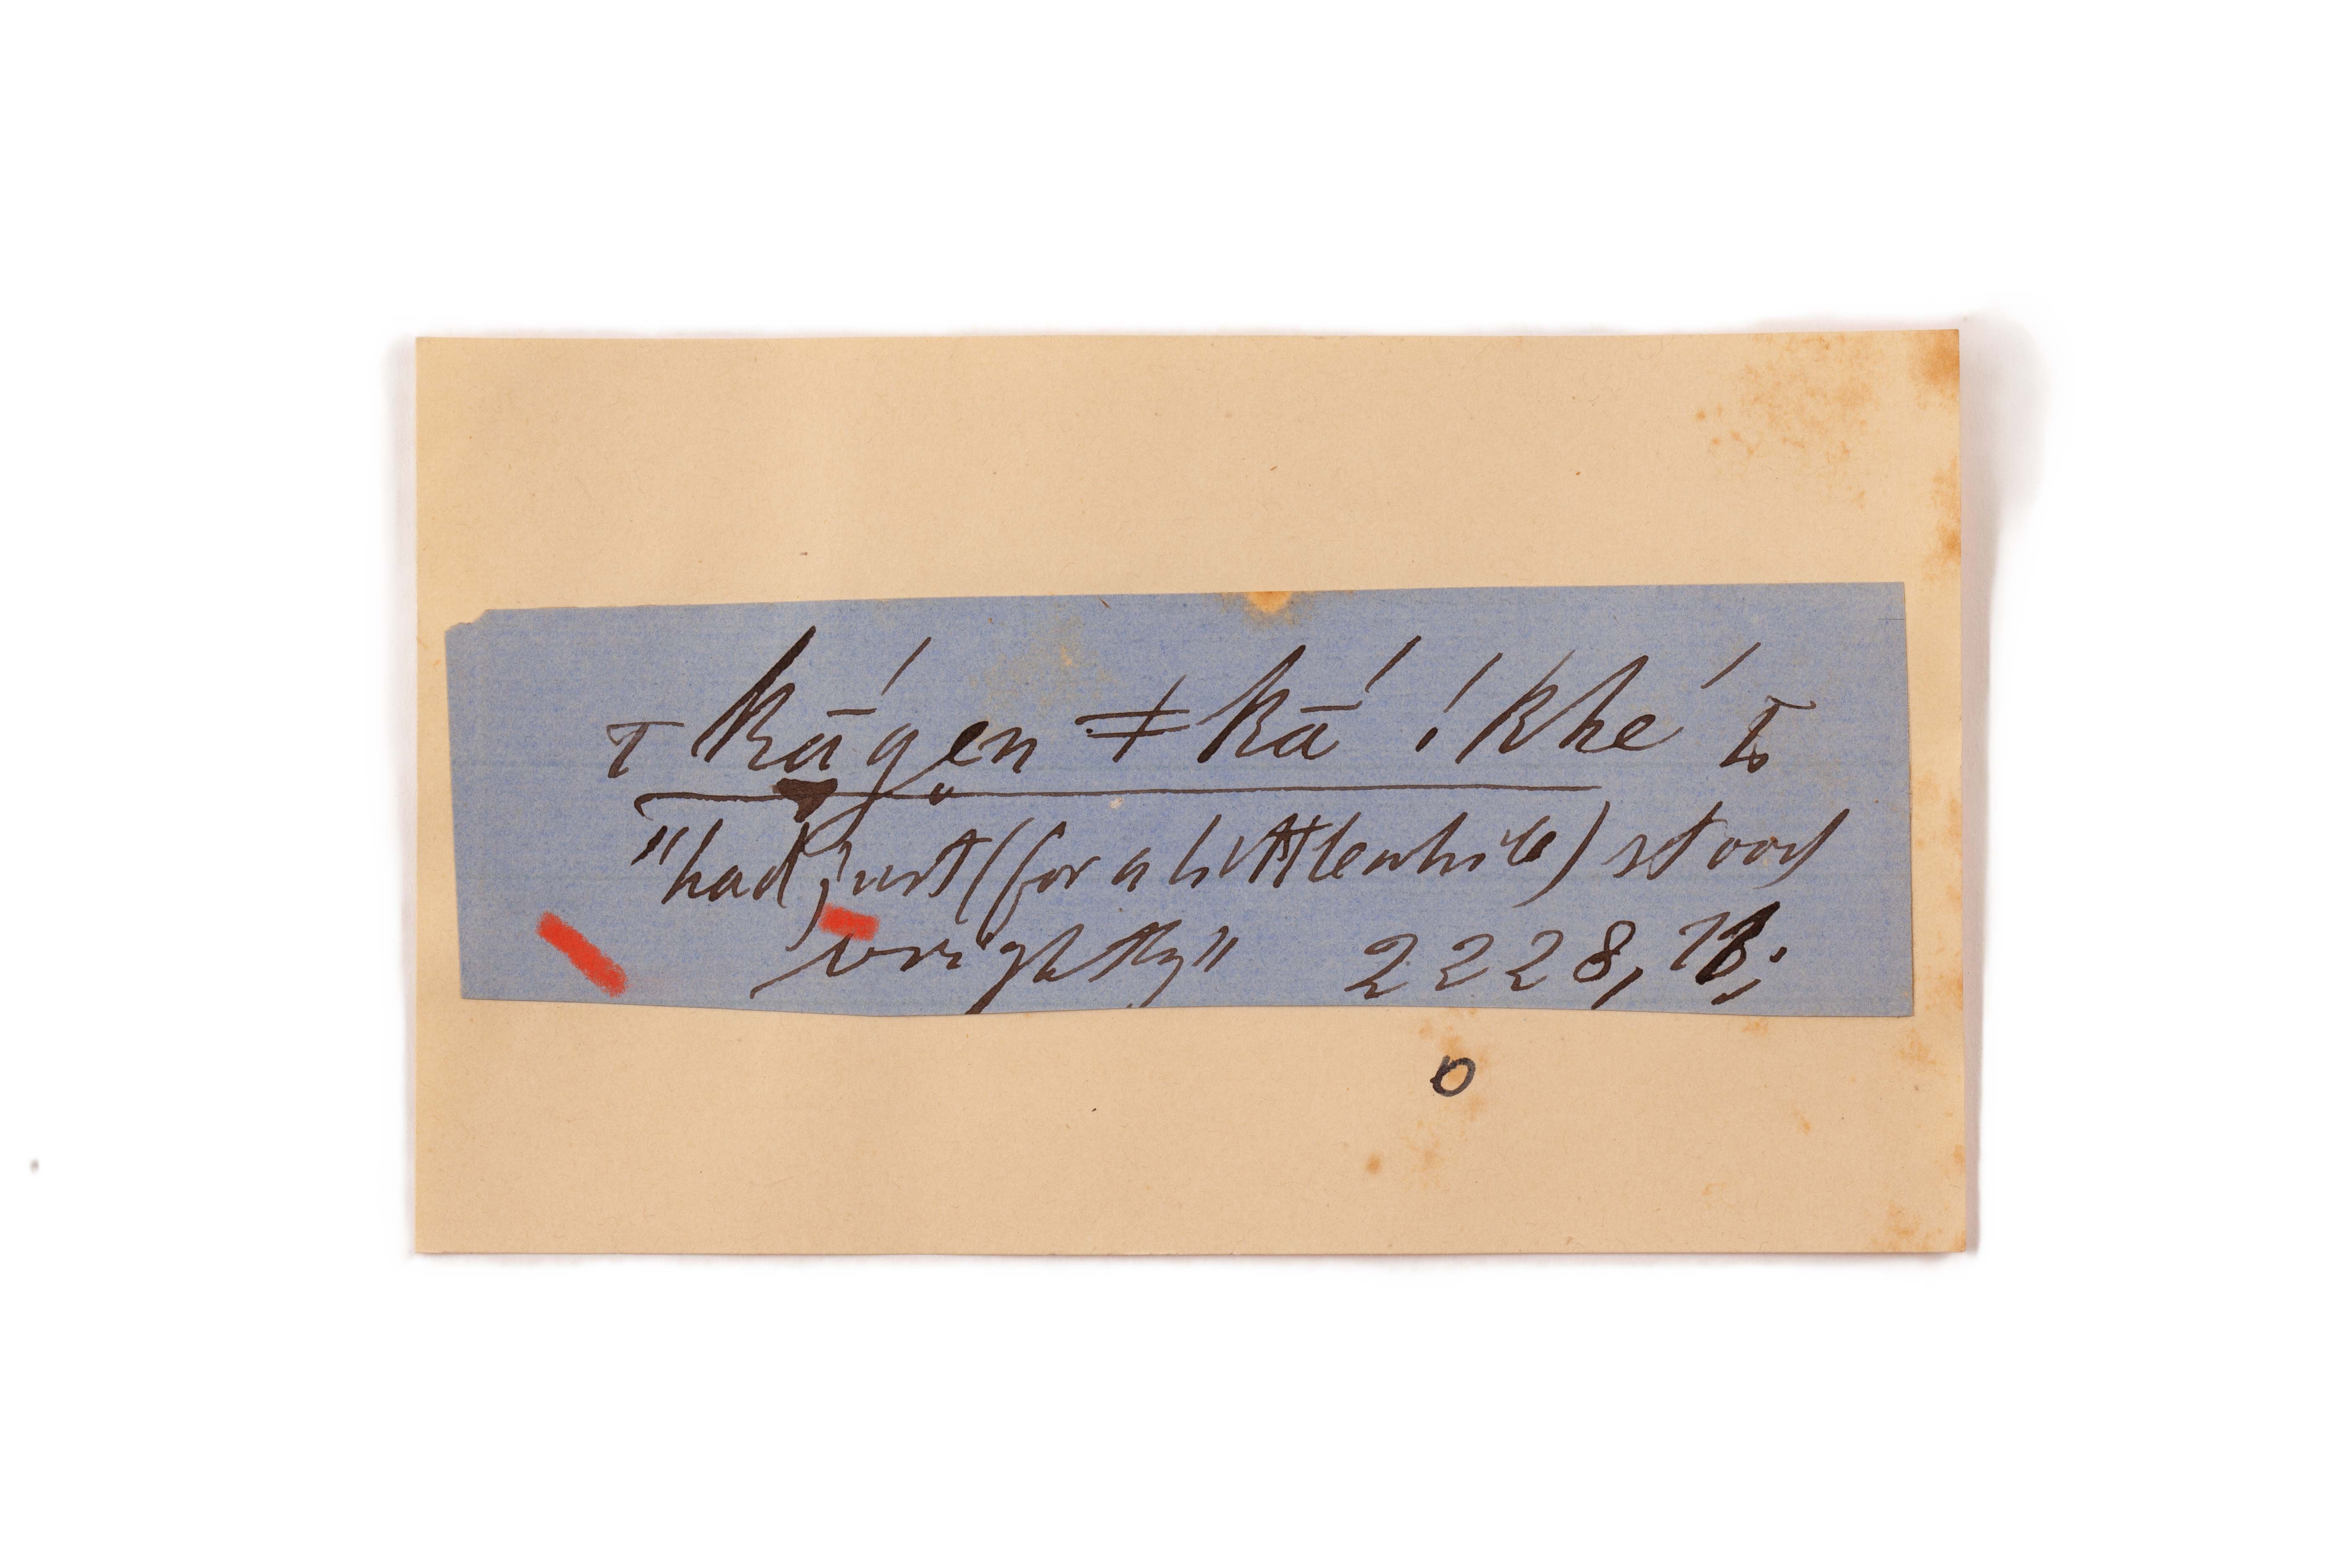 T kā́gen ǂkā́ !khé ꞇō
"had just (for a little while) stood
uprightly" 2228, B;
o